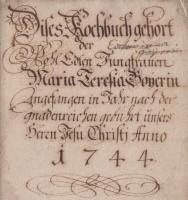 Dises Kochbuch gehort
der
Wohl Edlen Jungfrauen
Maria Teresia Boyerin
Angefangen in Jahr nach der
gnadenreichen geburt unsers
Herrn Jesu Christi Anno
1744